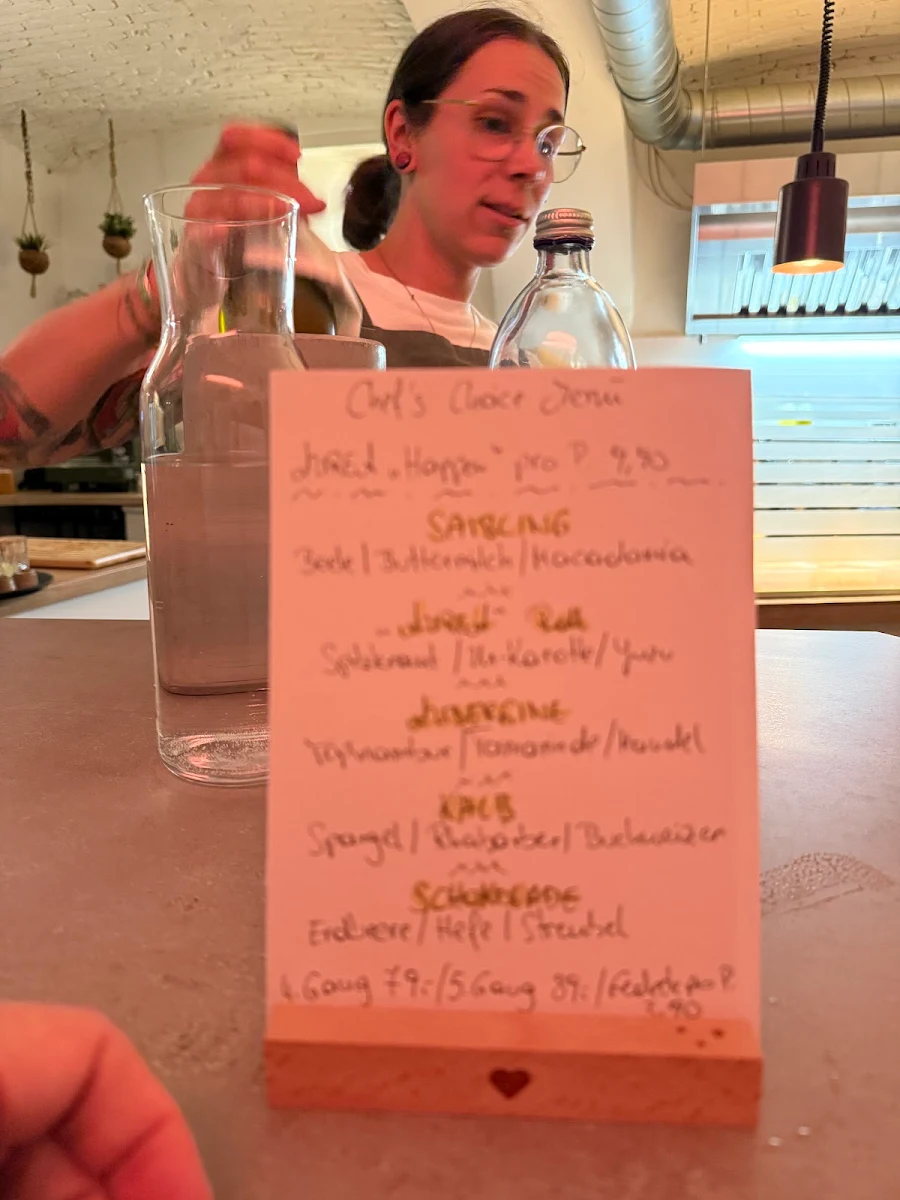 Chef's Choice Menü
"Happen" pro P. 9,90
SAIBLING
Beete / Buttermilch / Macadamia
Roll
Spitzkraut / Ur-Karotte / Yuzu
AUBERGINE
Topinambur / / Mandel
KALB
Spargel / Rhabarber / Buchweizen
SCHOKOLADE
Erdbeere / Hefe / Streusel
4 Gang 79.- / 5 Gang 89.- / Gedeck pro P.